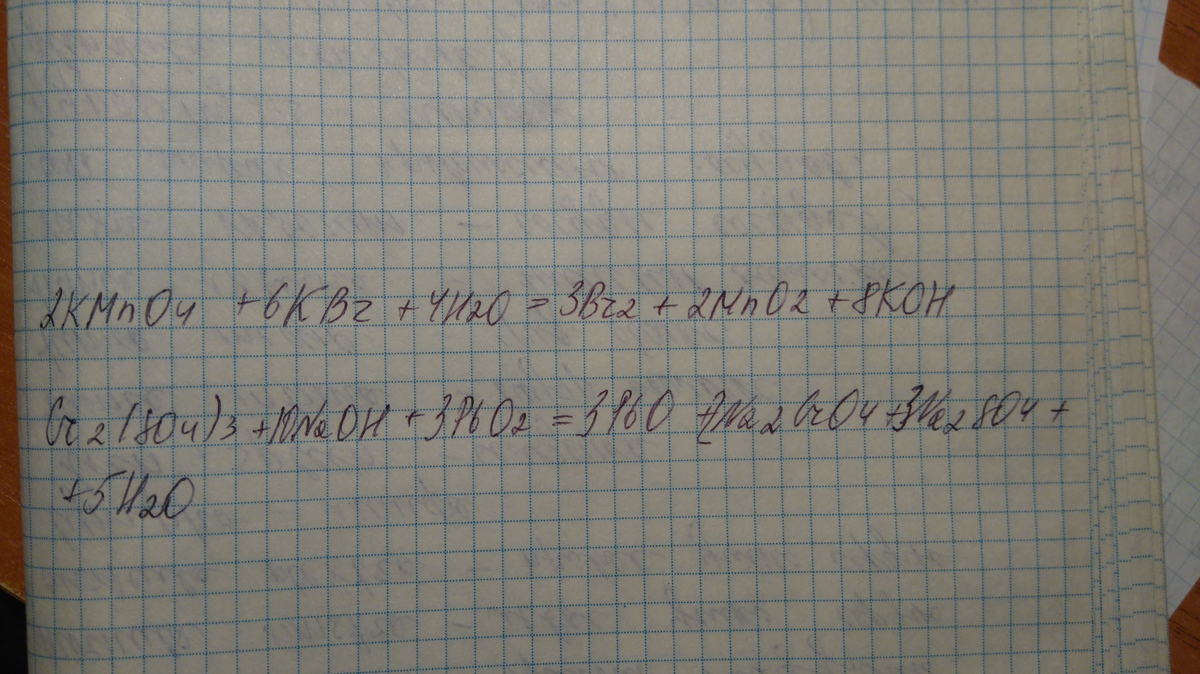 2KMnO4 + 6KBr + 4H2O = 3Br2 + 2MnO2 + 8KOH
Cr2(SO4)3 + 10NaOH + 3PbO2 = 3PbO + 2Na2CrO4 + 3Na2SO4 +
+ 5H2O